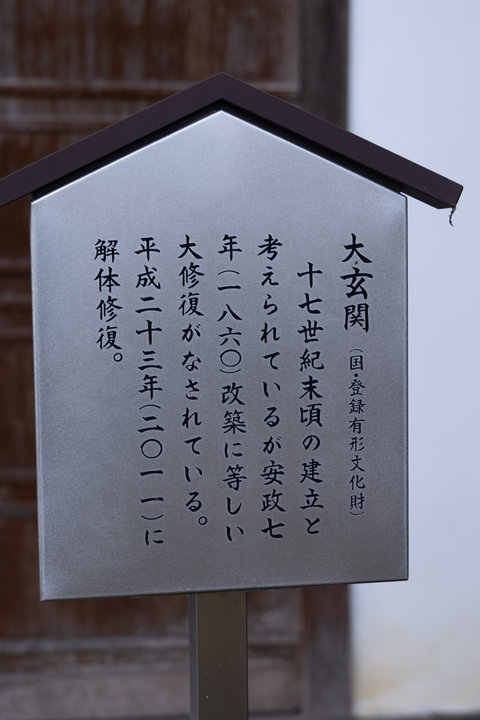 大玄関（国・登録有形文化財）
十七世紀末頃の建立と
考えられているが安政七
年（一八六〇）改築に等しい
大修復がなされている。
平成二十三年（二〇一一）に
解体修復。